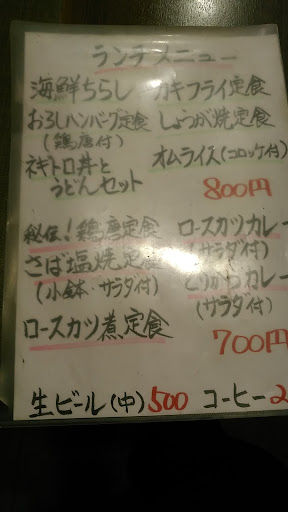 ランチメニュー
海鮮ちらし カキフライ定食
おろしハンバーグ定食 しょうが焼定食
(鶏唐付)
ネギトロ丼と オムライス(コロッケ付)
うどんセット
800円
秘伝!鶏唐定食 ロースカツカレー
(サラダ付)
さば塩焼定食 とりかつカレー
(小鉢・サラダ付) (サラダ付)
ロースカツ煮定食
700円
生ビール(中)500 コーヒー2